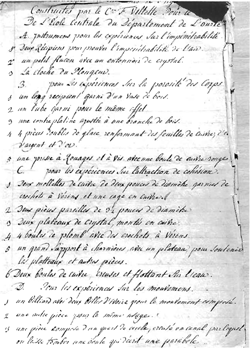 Construites par le Cen F. Villette pour le
De l'Ecole Centrale du Département de l'Ourte
A. instrumens pour les expériences sur l'impénétrabilité
2 deux Récipiens pour prouver l'impénétrabilité de l'air
1 un petit flacon avec un entonnoir de crystal
1 La cloche du Plongeur
B. pour les Expériences sur la porosité des Corps
1 un long recipient garni d'un vase de bois
1 un tube garni pour le même effet
1 une
4 4 pieces doubles de glace renfermant des feuilles de cuivre, d'or
d'argent et d'
1 une presse à Rouages et à Vis, avec une boule de cuivre rouge
C. pour les expériences sur l'attraction de cohésion
2 Deux mollettes de cuivre de deux pouces de diametre, garnies de
crochets à Vérens et une cage en cuivre
2 Deux pièces pareilles de 2½ pouces de diametre
2 Deux plateaux de crystal, montés en cuivre
4 4 boules de plomb avec des crochets à Vérens
1 un grand Support à charnières avec un plateau, pour Soutenir
les plateaux et autres pièces.
2 Deux boules de cuivre, creuses et flottant sur l'eau
D. Pour les expériences sur les mouvemens
1 un Billard avec deux Billes d'ivoire pour le mouvement composé
1 une autre pièce pour le même usage
1 une pièce composée d'un quart de cercle, creusée en canal par lequel
on laisse tomber une boule qui décrit une parabole